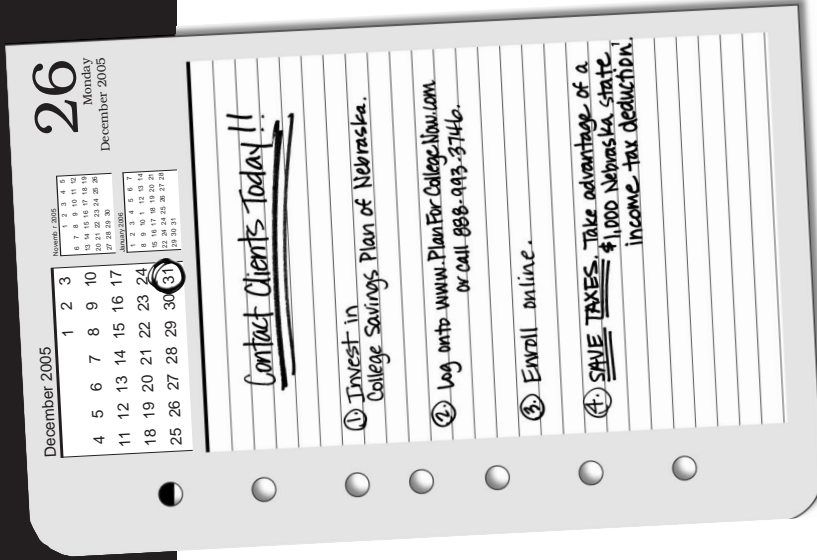 26
Monday
December 2005
November 2005
1 2 3 4 5
6 7 8 9 10 11 12
13 14 15 16 17 18 19
20 21 22 23 24 25 26
27 28 29 30
January 2006
1 2 3 4 5 6 7
8 9 10 1 12 13 14
15 16 17 18 19 20 21
22 23 24 25 26 27 28
29 30 31
December 2005
1 2 3
4 5 6 7 8 9 10
11 12 13 14 15 16 17
18 19 20 21 22 23 24
25 26 27 28 29 30 31
Contact Clients Today!!
1. Invest in
College Savings Plan of Nebraska.
2. Log onto www.PlanForCollegeNow.com
or call 888.993.3746.
3. Enroll online.
4. SAVE TAXES. Take advantage of a
$1,000 Nebraska state
income tax deduction.¹